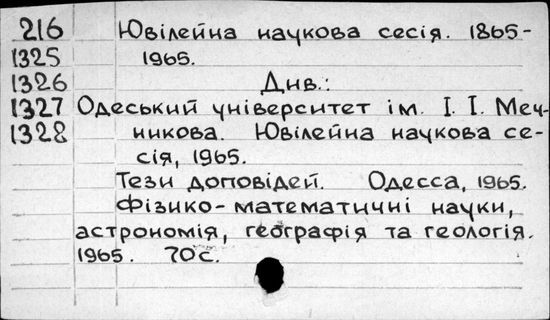 216 Ювілейна наукова сесія. 1865-
1325 1965.
1326 Див.:
1327 Одеський університет ім. І. І. Меч-
1328 никова. Ювілейна наукова се-
сія, 1965.
Тези доповідей. Одесса, 1965.
Фізико-математичні науки,
астрономія, географія та геологія.
1965. 70 с.